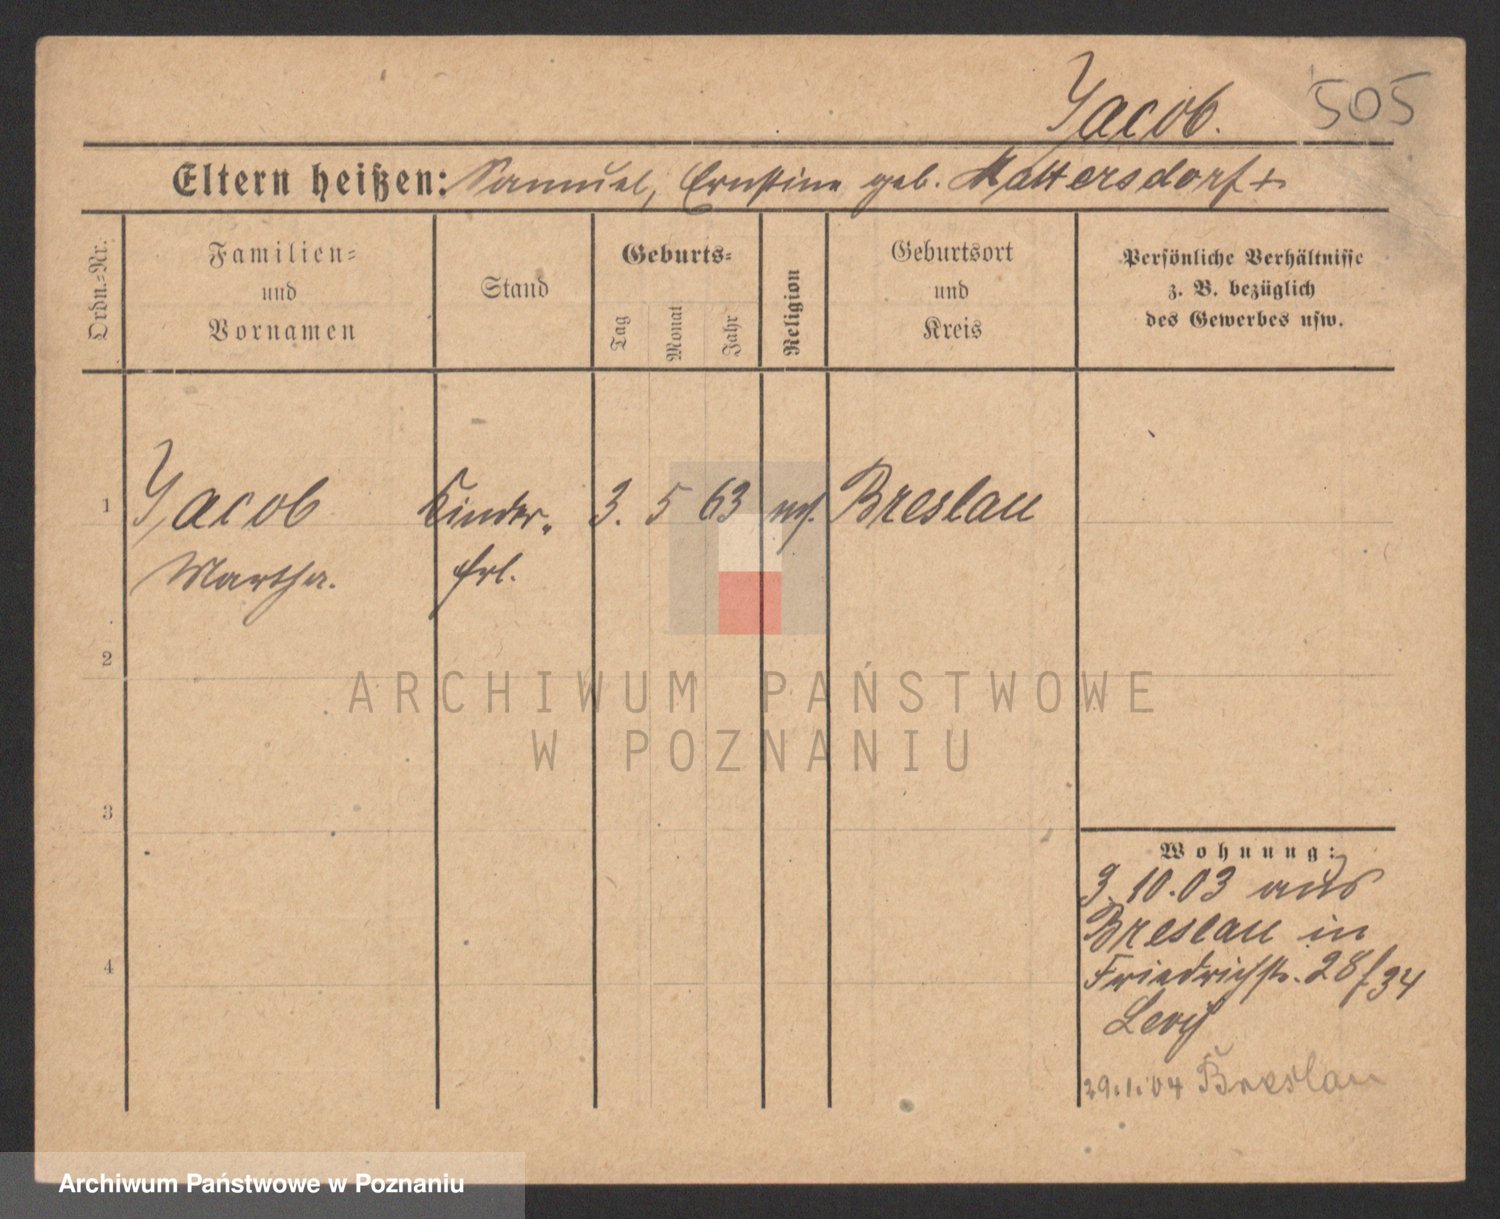 Jacob. 505
Eltern heißen: Samuel, Ernstine geb. Mattersdorf +
Ordn.=Nr.
Familien=
und
Vornamen
Stand
Geburts=
Tag
Monat
Jahr
Religion
Geburtsort
und
Kreis
Persönliche Verhältnisse
z. B. bezüglich
des Gewerbes usw.
1 Jacob Kinder- 3. 5 63 Breslau
Martha. frl.
2
3
4
ARCHIWUM PAŃSTWOWE
W POZNANIU
Wohnung:
3.10.03 aus
Breslau in
Friedrichstr. 28/34
Levy
29.1.04 Breslau
Archiwum Państwowe w Poznaniu